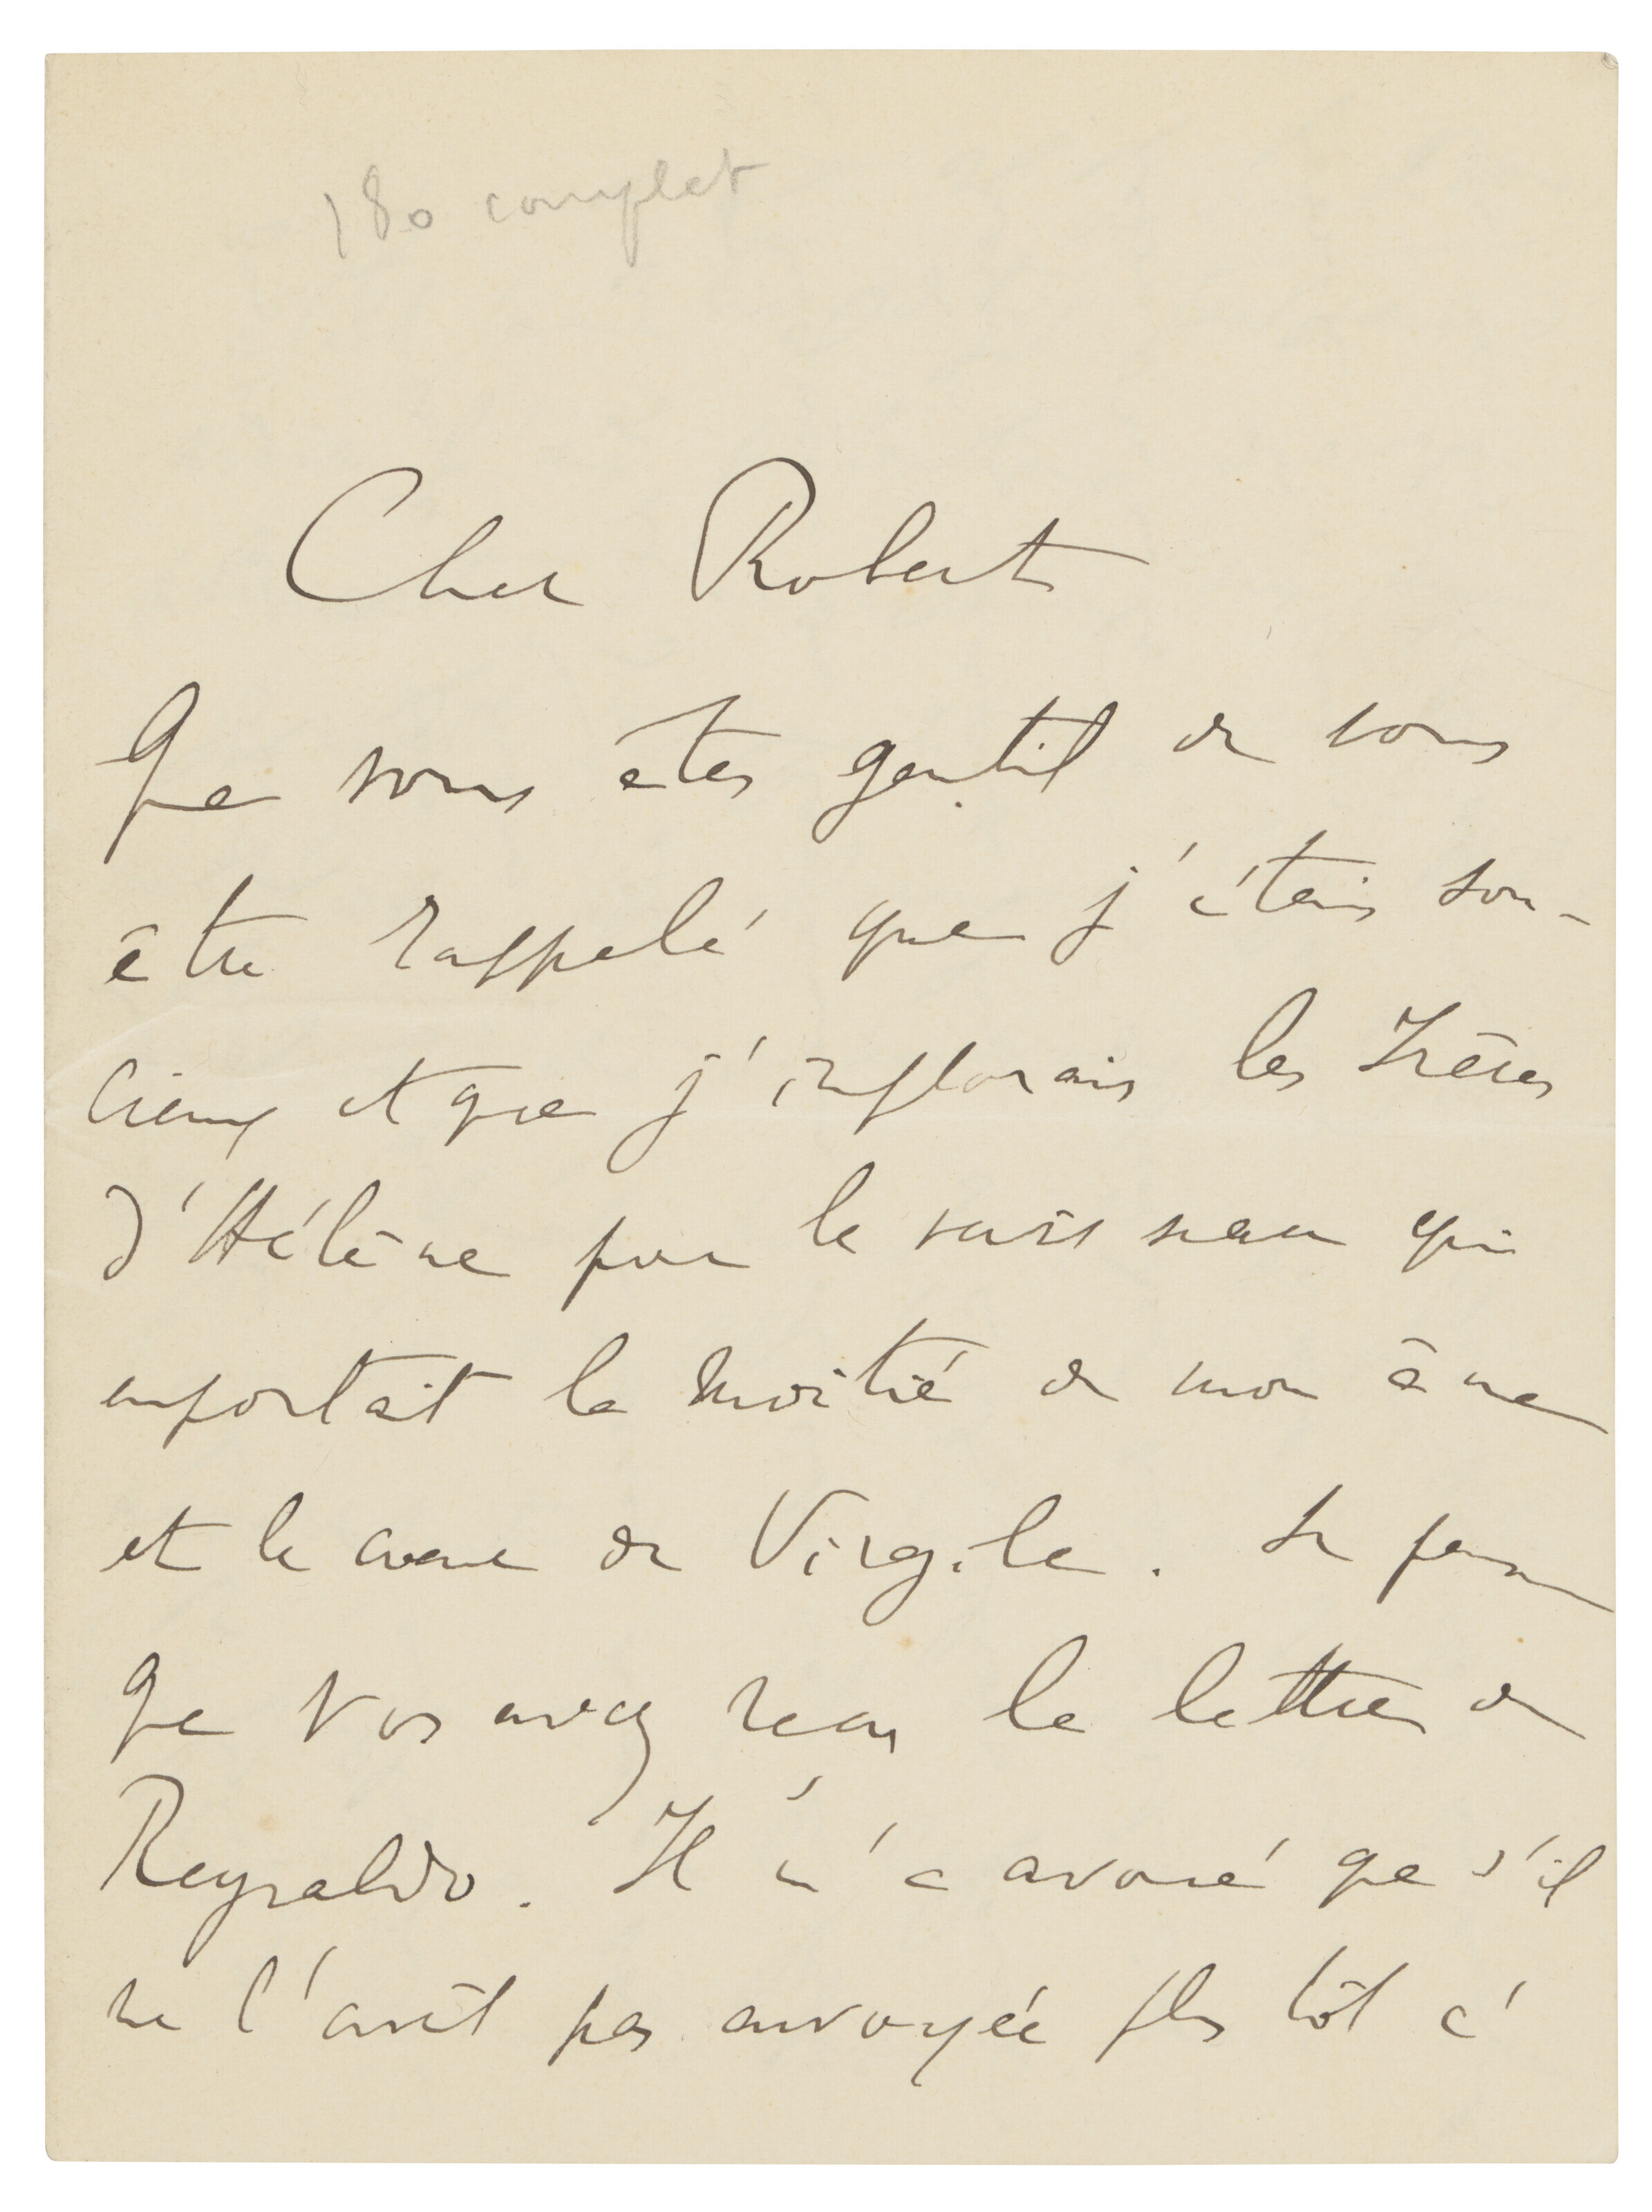 180 complet
Cher Robert
Que vous êtes gentil de vous
être rappelé que j'étais sou-
cieux et que j'implorais les frères
d'Hélène pour le vaisseau qui
emportait la moitié de mon âme
et le cœur de Virgile. Je pense
que vous avez reçu la lettre de
Reynaldo. Il m'a avoué que s'il
ne l'avait pas envoyée plus tôt c'